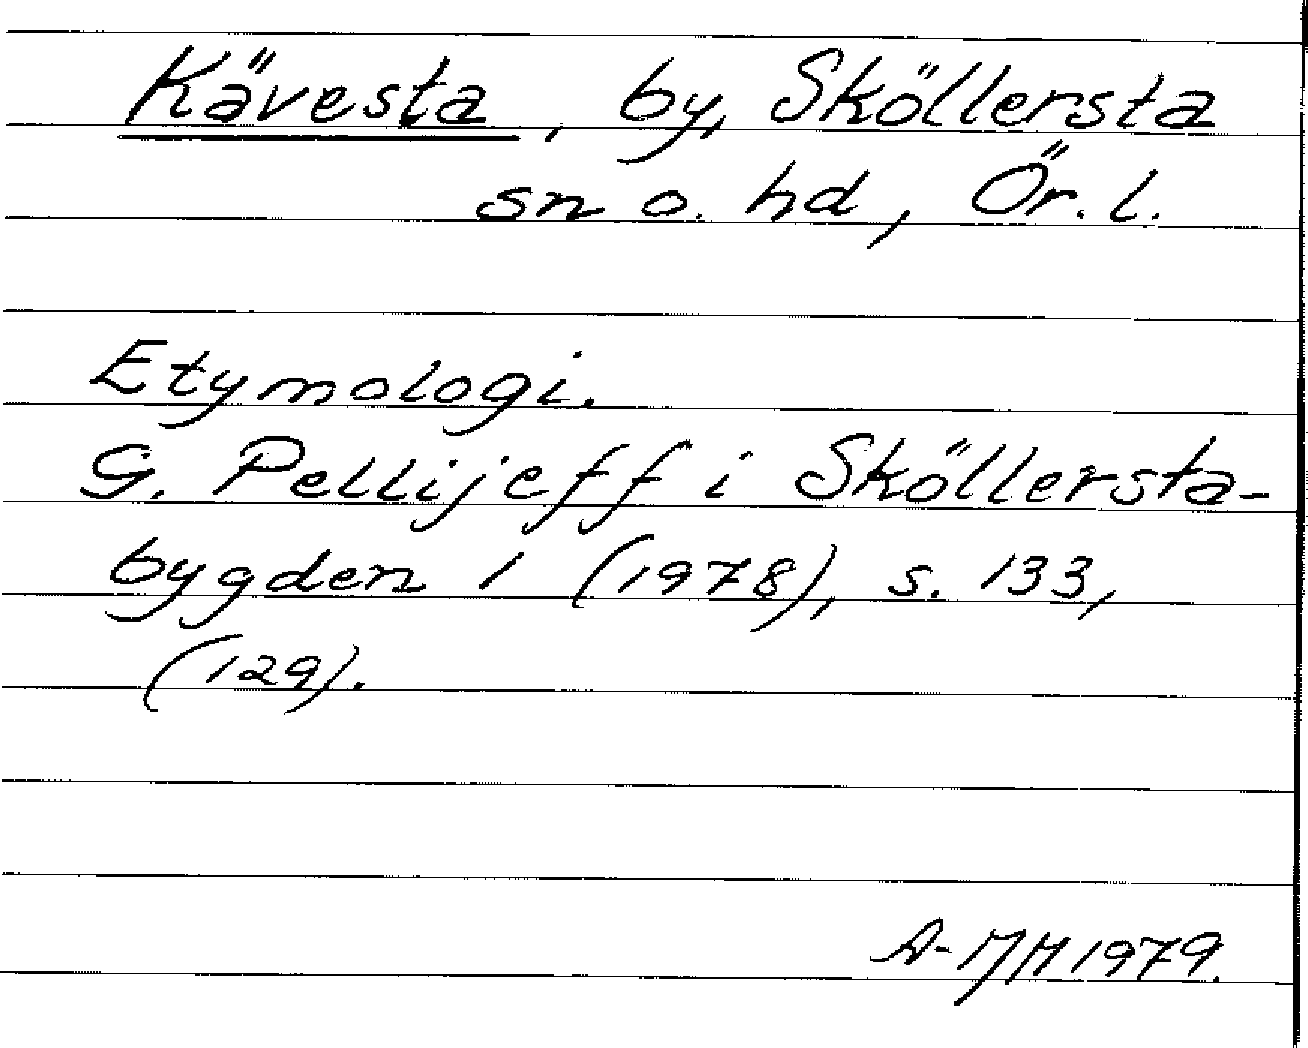 Kävesta, by, Sköllersta
sn o. hd, Ör. l.
Etymologi.
G. Pellijeff i Sköllersta-
bygden 1 (1978), s. 133,
(129).
A-MH 1979.